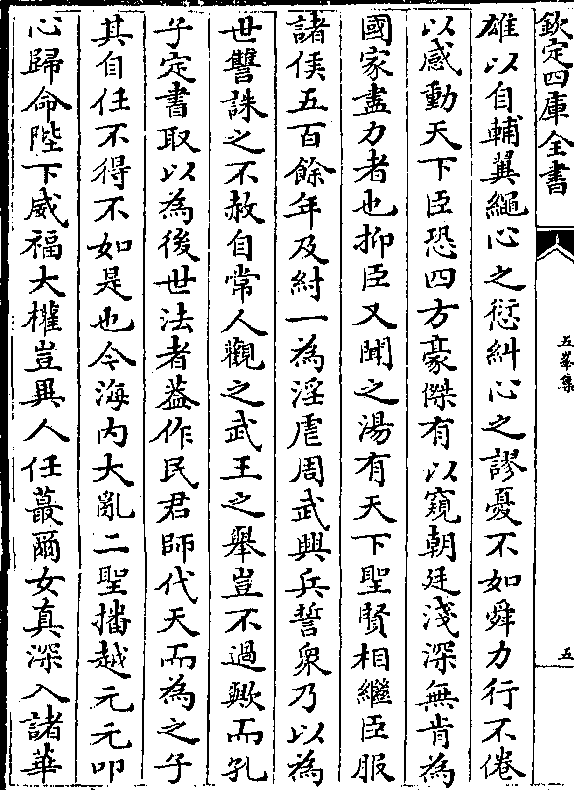 欽定四庫全書
五峯集
五
雄以自輔翼繩心之愆糾心之謬憂不如舜力行不倦
以感動天下臣恐四方豪傑有以窺朝廷淺深無肯為
國家盡力者也抑臣又聞之湯有天下聖賢相繼臣服
諸侯五百餘年及紂一為淫虐周武興兵誓衆乃以為
世讐誅之不赦自常人觀之武王之舉豈不過歟而孔
子定書取以為後世法者葢作民君師代天而為之子
其自任不得不如是也今海内大亂二聖播越元元叩
心歸命陛下威福大權豈異人任蕞爾女真深入諸華